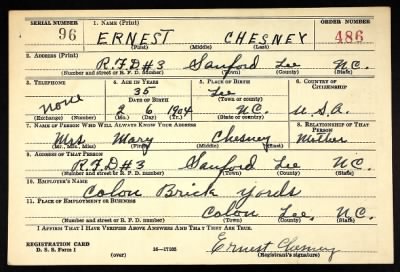 SERIAL NUMBER 1. NAME (Print) ORDER NUMBER
96 ERNEST CHESNEY 486
(First) (Middle) (Last)
2. ADDRESS (Print)
R.F.D #3 Sanford Lee N.C.
(Number and street or R. F. D. number) (Town) (County) (State)
3. TELEPHONE 4. AGE IN YEARS 5. PLACE OF BIRTH 6. COUNTRY OF CITIZENSHIP
35 Lee
none DATE OF BIRTH (Town or county)
2 6 1904 N.C. U.S.A.
(Exchange) (Number) (Mo.) (Day) (Yr.) (State or country)
7. NAME OF PERSON WHO WILL ALWAYS KNOW YOUR ADDRESS 8. RELATIONSHIP OF THAT PERSON
Mrs. Mary Chesney Mother
(Mr., Mrs., Miss) (First) (Middle) (Last)
9. ADDRESS OF THAT PERSON
R.F.D #3 Sanford Lee N.C.
(Number and street or R. F. D. number) (Town) (County) (State)
10. EMPLOYER'S NAME
Colon Brick Yards
11. PLACE OF EMPLOYMENT OR BUSINESS
Colon Lee, N.C.
(Number and street or R. F. D. number) (Town) (County) (State)
I AFFIRM THAT I HAVE VERIFIED ABOVE ANSWERS AND THAT THEY ARE TRUE.
REGISTRATION CARD Ernest Chesney
D. S. S. Form 1 (over) 16—17105 (Registrant's signature)